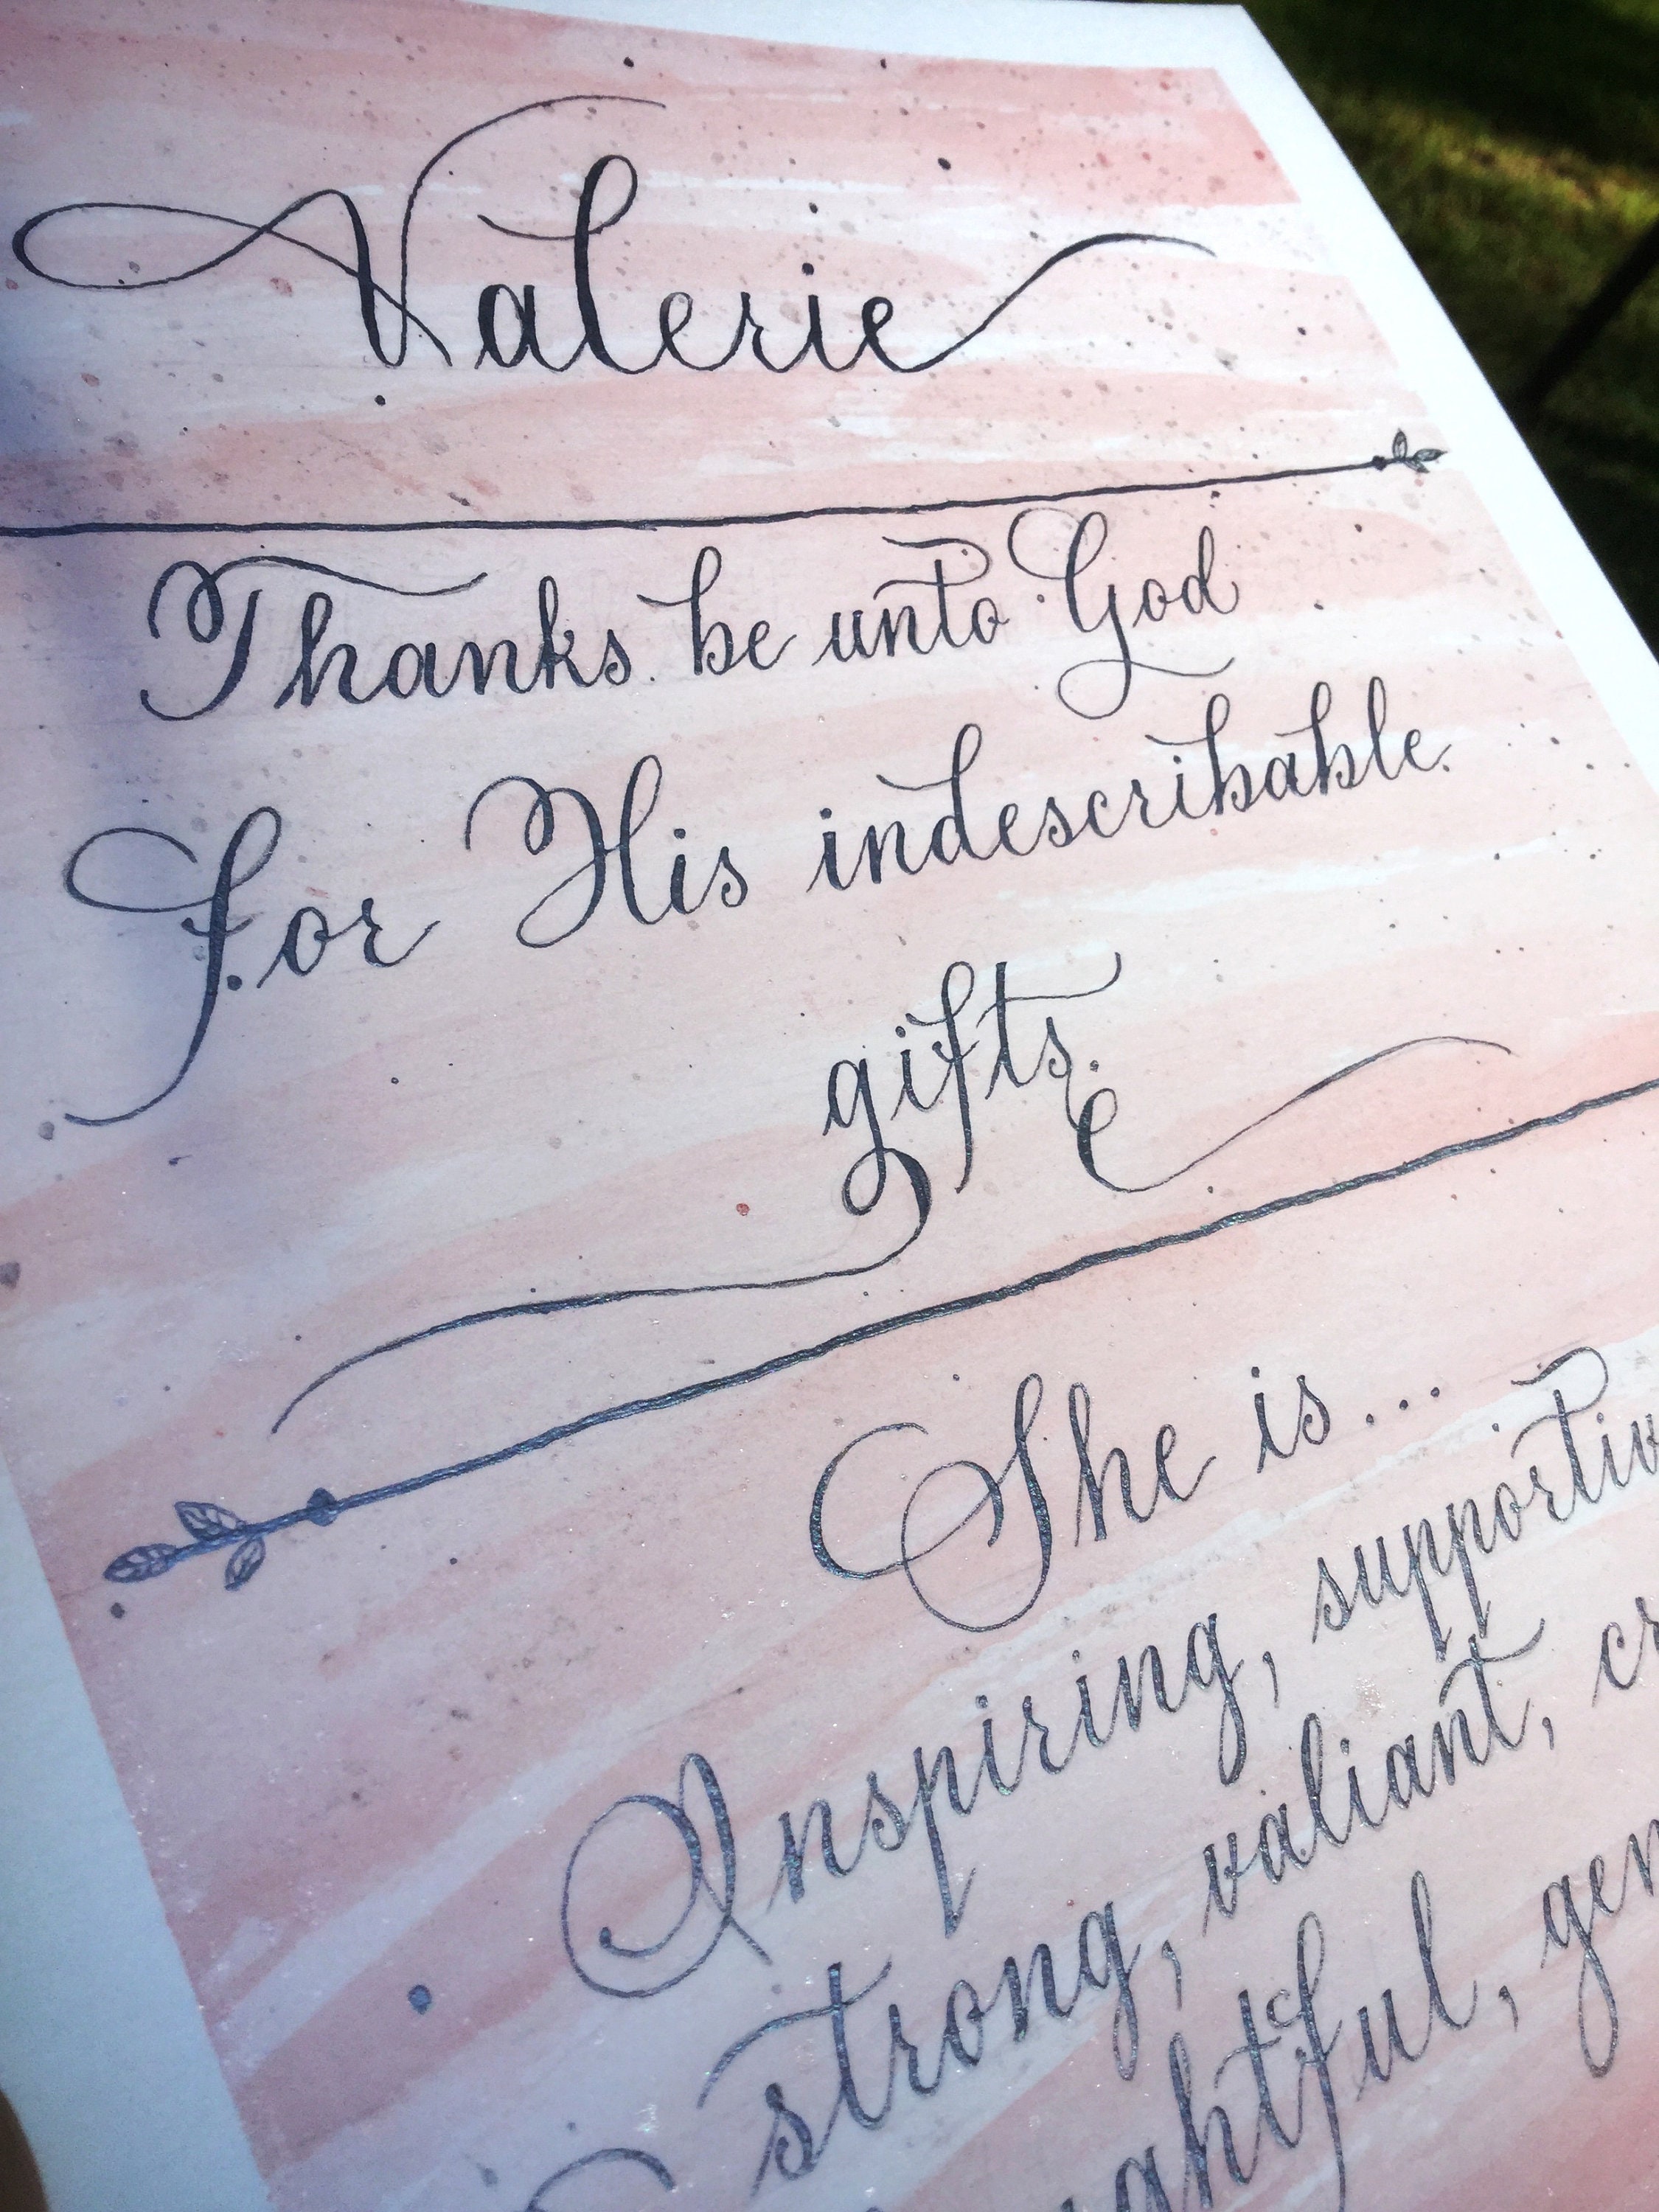 Valerie
Thanks be unto God
for His indescribable
gifts.
She is...
Inspiring, supportiv
strong, valiant, cr
ghtful, gen